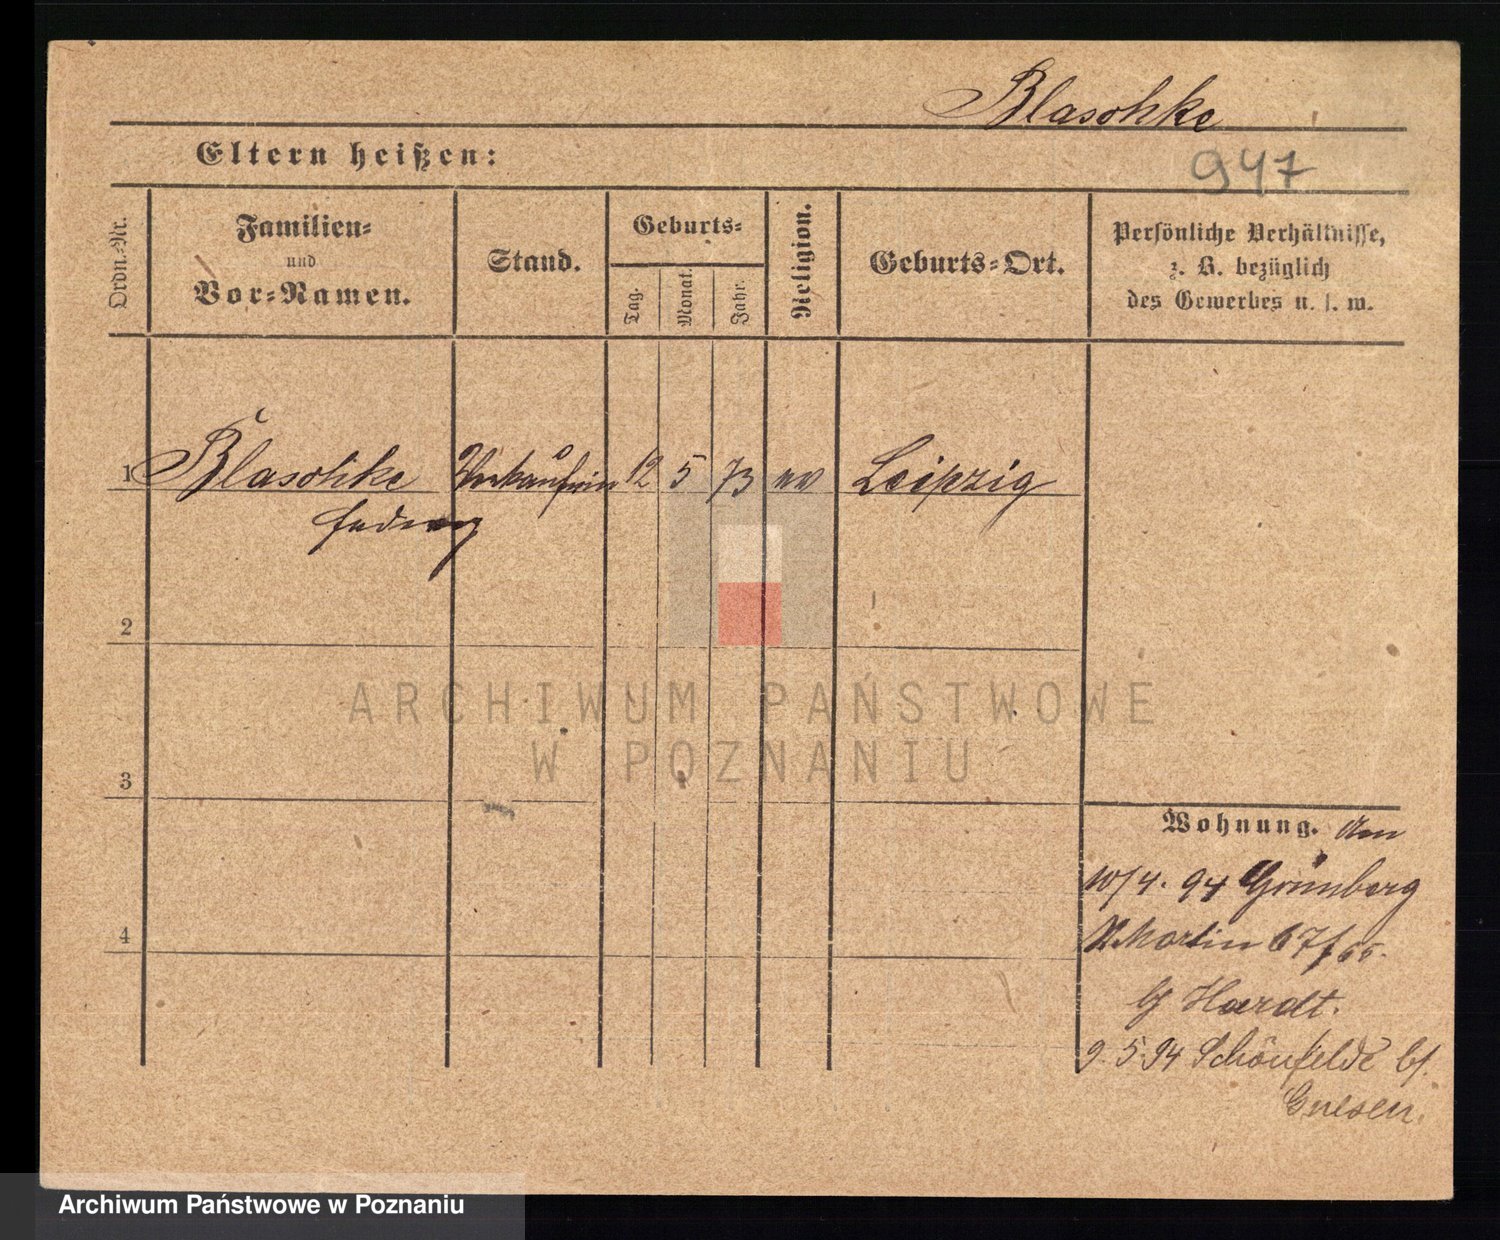 Blaschke
Eltern heißen:
947
Ordn.-Nr.
Familien-
und
Vor-Namen.
Stand.
Geburts-
Tag.
Monat.
Jahr.
Religion.
Geburts-Ort.
Persönliche Verhältnisse,
z. B. bezüglich
des Gewerbes u. s. w.
1 Blaschke Verkäuferin 12 5 73 ev Leipzig
2
ARCHIWUM PAŃSTWOWE
W POZNANIU
3
Wohnung. Am
10/4. 94 Grünberg
St Martin 67/
Hardt.
9.5.94 Schönfelde b/.
Gnesen.
4
Archiwum Państwowe w Poznaniu